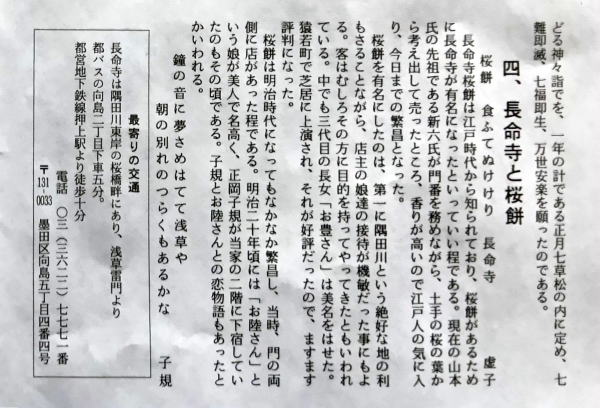 どる神々詣でを、一年の計である正月七草松の内に定め、七
難即滅、七福即生、万世安楽を願ったのである。
四、長命寺と桜餅
桜餅　食ふてぬけけり　長命寺　　虚子
長命寺桜餅は江戸時代から知られており、桜餅があるため
に長命寺が有名になったといっていい程である。現在の山本
氏の先祖である新六氏が門番を務めながら、土手の桜の葉か
ら考え出して売ったところ、香りが高いので江戸人の気に入
り、今日までの繁昌となった。
桜餅を有名にしたのは、第一に隅田川という絶好な地の利
もさることながら、店主の娘達の接待が機敏だった事にもよ
る。客はむしろその方に目的を持ってやってきたともいわれ
ている。中でも三代目の長女「お豊さん」は美名をはせた。
猿若町で芝居に上演され、それが好評だったので、ますます
評判になった。
桜餅は明治時代になってもなかなか繁昌し、当時、門の両
側に店があった程である。明治二十年頃には「お陸さん」と
いう娘が美人で名高く、正岡子規が当家の二階に下宿してい
たのもその頃である。子規とお陸さんとの恋物語もあったと
かいわれる。
鐘の音に夢さめはてて浅草や
朝の別れのつらくもあるかな　　子規
最寄りの交通
長命寺は隅田川東岸の桜橋畔にあり、浅草雷門より
都バスの向島二丁目下車五分。
都営地下鉄線押上駅より徒歩十分
電話　〇三（三六二二）七七七一番
〒131-0033　墨田区向島五丁目四番四号